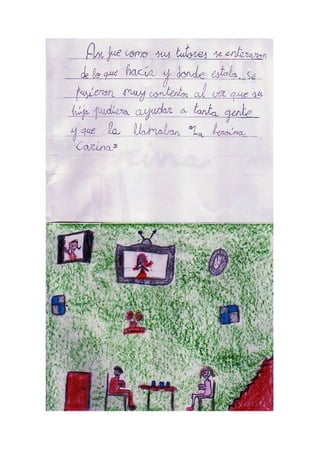 Así fue como sus tutores se enteraron
de lo que hacía y donde estaba. Se
pusieron muy contentos al ver que su
hija pudiera ayudar a tanta gente
y que la llamaban "La heroína
Carina"